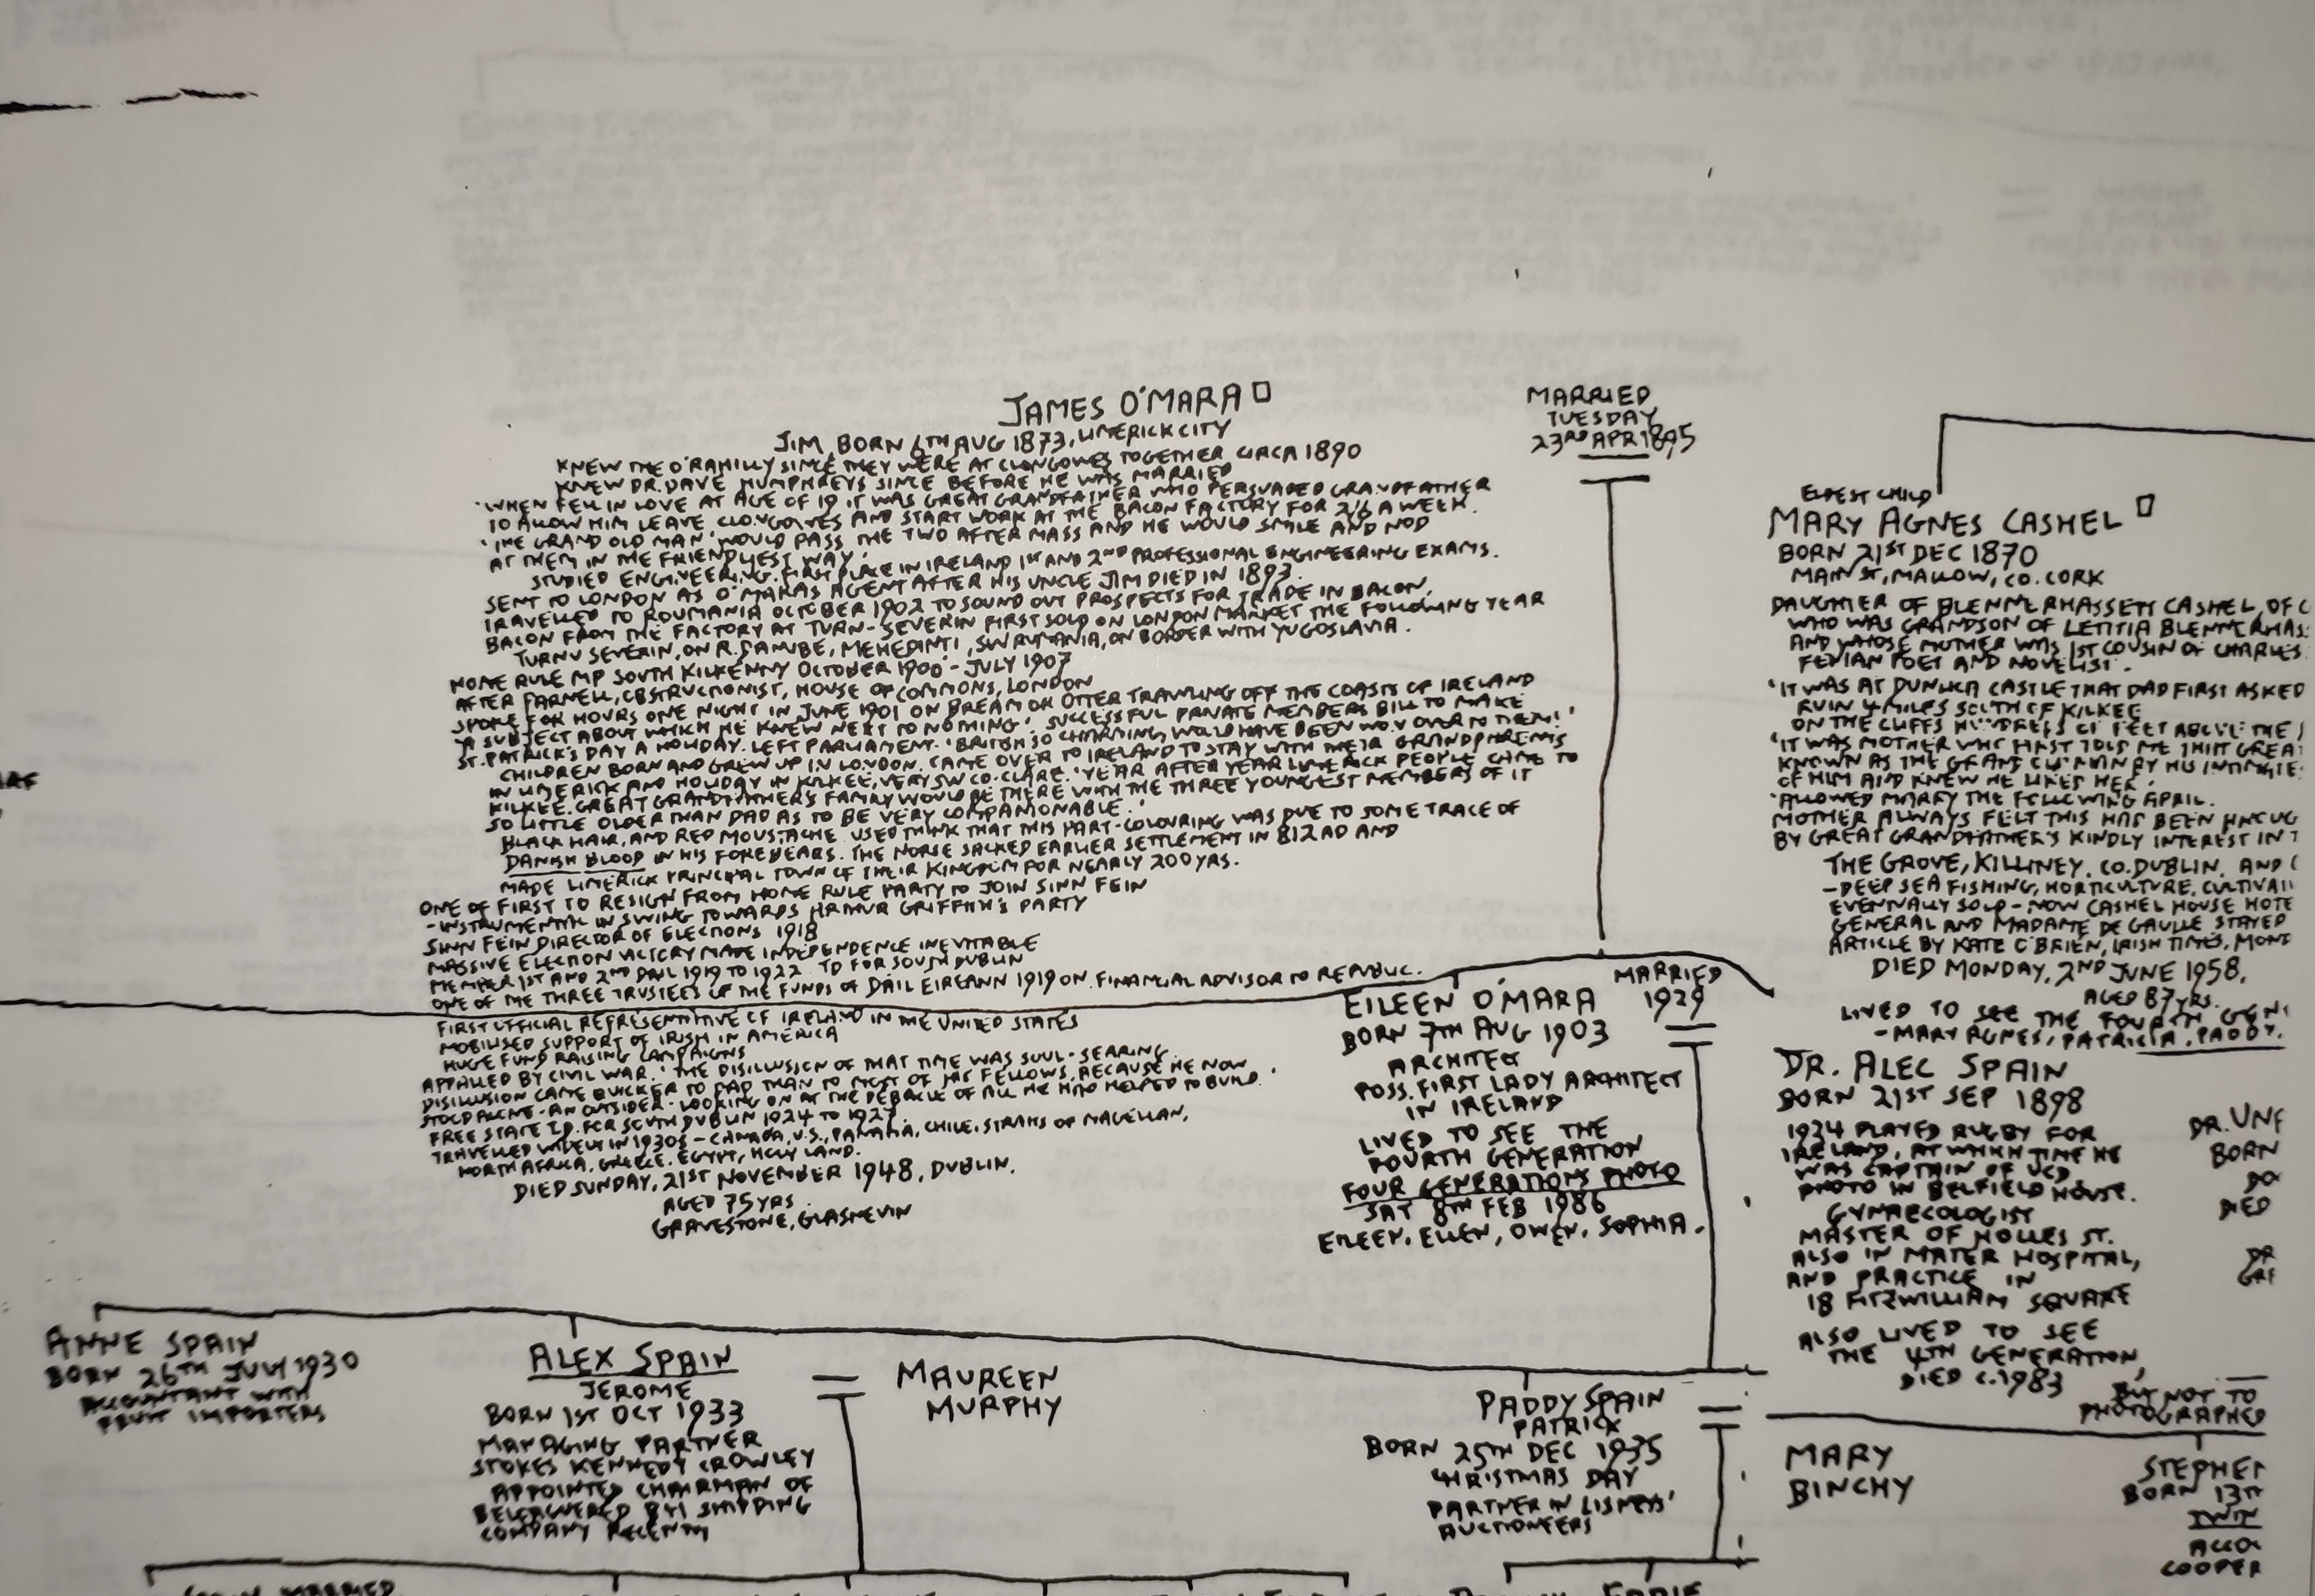 JAMES O'MARA
JIM, BORN 6TH AUG 1873, LIMERICK CITY
KNEW THE O'RAHILLY SINCE THEY WERE AT CLONGOWES TOGETHER CIRCA 1890
KNEW DR. DAVE HUMPHREYS SINCE BEFORE HE WAS MARRIED
'WHEN FELL IN LOVE AT AGE OF 19 IT WAS GREAT GRANDFATHER WHO PERSUADED GRANDFATHER
TO ALLOW HIM LEAVE CLONGOWES AND START WORK AT THE BACON FACTORY FOR 2/6 A WEEK.
'THE GRAND OLD MAN WOULD PASS THE TWO AFTER MASS AND HE WOULD SMILE AND NOD
AT THEM IN THE FRIENDLIEST WAY.'
STUDIED ENGINEERING. FIRST PLACE IN IRELAND 1ST AND 2ND PROFESSIONAL ENGINEERING EXAMS.
SENT TO LONDON AS O'MARAS AGENT AFTER HIS UNCLE JIM DIED IN 1893.
TRAVELLED TO ROUMANIA OCTOBER 1902 TO SOUND OUT PROSPECTS FOR TRADE IN BACON.
BACON FROM THE FACTORY AT TURN-SEVERIN FIRST SOLD ON LONDON MARKET THE FOLLOWING YEAR
TURNU SEVERIN, ON R. DANUBE, MEHEDINTI, SW RUMANIA, ON BORDER WITH YUGOSLAVIA.
HOME RULE MP SOUTH KILKENNY OCTOBER 1900 - JULY 1907
AFTER PARNELL, OBSTRUCTIONIST, HOUSE OF COMMONS, LONDON
SPOKE FOR HOURS ONE NIGHT IN JUNE 1901 ON BREAM OR OTTER TRAWLING OFF THE COASTS OF IRELAND
'A SUBJECT ABOUT WHICH HE KNEW NEXT TO NOTHING'. SUCCESSFUL PRIVATE MEMBERS BILL TO MAKE
ST. PATRICK'S DAY A HOLIDAY. LEFT PARLIAMENT. 'BRITISH SO CHARMING, WOULD HAVE BEEN WON OVER TO THEM!'
CHILDREN BORN AND GREW UP IN LONDON. CAME OVER TO IRELAND TO STAY WITH THEIR GRANDPARENTS
IN LIMERICK AND HOLIDAY IN KILKEE, VERY SW CO. CLARE. 'YEAR AFTER YEAR LIMERICK PEOPLE CAME TO
KILKEE. GREAT GRANDFATHER'S FAMILY WOULD BE THERE WITH THE THREE YOUNGEST MEMBERS OF IT
SO LITTLE OLDER THAN DAD AS TO BE VERY COMPANIONABLE.'
BLACK HAIR, AND RED MOUSTACHE. USED THINK THAT THIS PART-COLOURING WAS DUE TO SOME TRACE OF
DANISH BLOOD IN HIS FOREBEARS. THE NORSE SACKED EARLIER SETTLEMENT IN 812 AD AND
MADE LIMERICK PRINCIPAL TOWN OF THEIR KINGDOM FOR NEARLY 200 YRS.
ONE OF FIRST TO RESIGN FROM HOME RULE PARTY TO JOIN SINN FEIN
-INSTRUMENTAL IN SWING TOWARDS ARTHUR GRIFFITH'S PARTY
SINN FEIN DIRECTOR OF ELECTIONS 1918
MASSIVE ELECTION VICTORY MADE INDEPENDENCE INEVITABLE
MEMBER 1ST AND 2ND DAIL 1919 TO 1922 TD FOR SOUTH DUBLIN
ONE OF THE THREE TRUSTEES OF THE FUNDS OF DAIL EIREANN 1919 ON. FINANCIAL ADVISOR TO REPUBLIC.
FIRST OFFICIAL REPRESENTATIVE OF IRELAND IN THE UNITED STATES
MOBILISED SUPPORT OF IRISH IN AMERICA
HUGE FUND RAISING CAMPAIGNS
APPALLED BY CIVIL WAR. 'THE DISILLUSION OF THAT TIME WAS SOUL-SEARING.
DISILLUSION CAME QUICKER TO DAD THAN TO MOST OF HIS FELLOWS, BECAUSE HE NOW
STOOD ALONE - AN OUTSIDER - LOOKING ON AT THE DEBACLE OF ALL HE HAD HELPED TO BUILD.'
FREE STATE T.D. FOR SOUTH DUBLIN 1924 TO 1927.
TRAVELLED WIDELY IN 1930S - CANADA, U.S., PANAMA, CHILE, STRAITS OF MAGELLAN,
NORTH AFRICA, GREECE, EGYPT, HOLY LAND.
DIED SUNDAY, 21ST NOVEMBER 1948, DUBLIN.
AGED 75 YRS
GRAVESTONE, GLASNEVIN
MARRIED
TUESDAY
23RD APR 1895
ELDEST CHILD
MARY AGNES CASHEL
BORN 21ST DEC 1870
MAIN ST, MALLOW, CO. CORK
DAUGHTER OF BLENNERHASSETT CASHEL, OF C
WHO WAS GRANDSON OF LETITIA BLENNERHAS
AND WHOSE MOTHER WAS 1ST COUSIN OF CHARLES
FENIAN POET AND NOVELIST.
'IT WAS AT DUNLICA CASTLE THAT DAD FIRST ASKED
RUIN 4 MILES SOUTH OF KILKEE
ON THE CLIFFS HUNDREDS OF FEET ABOVE THE
'IT WAS MOTHER WHO FIRST TOLD ME THAT GREAT
KNOWN AS THE GRAND OLD MAN BY HIS INTIMATE
OF HIM AND KNEW HE LIKED HER'.
'ALLOWED MARRY THE FOLLOWING APRIL.
MOTHER ALWAYS FELT THIS HAD BEEN
BY GREAT GRANDFATHER'S KINDLY INTEREST IN T
THE GROVE, KILLINEY, CO. DUBLIN, AND
-DEEP SEA FISHING, HORTICULTURE, CULTIVATI
EVENTUALLY SOLD - NOW CASHEL HOUSE HOTE
GENERAL AND MADAME DE GAULLE STAYED
ARTICLE BY KATE O'BRIEN, IRISH TIMES, MOND
DIED MONDAY, 2ND JUNE 1958,
AGED 87 YRS.
LIVED TO SEE THE FOURTH GEN
- MARY AGNES, PATRICIA, PADDY.
EILEEN O'MARA
BORN 7TH AUG 1903
ARCHITECT
POSS. FIRST LADY ARCHITECT
IN IRELAND
LIVED TO SEE THE
FOURTH GENERATION
FOUR GENERATIONS PHOTO
SAT 8TH FEB 1986
EILEEN, ELLEN, OWEN, SOPHIA.
MARRIED
1929
DR. ALEC SPAIN
BORN 21ST SEP 1898
1924 PLAYED RUGBY FOR
IRELAND, AT WHICH TIME HE
WAS CAPTAIN OF UCD
PHOTO IN BELFIELD HOUSE.
GYNAECOLOGIST
MASTER OF HOLLES ST.
ALSO IN MATER HOSPITAL,
AND PRACTICE IN
18 FITZWILLIAM SQUARE
ALSO LIVED TO SEE
THE 4TH GENERATION,
DIED C.1983
BUT NOT TO
PHOTOGRAPHED
DR. UNA
BORN
DO
DIED
DR
GRE
ANNE SPAIN
BORN 26TH JULY 1930
ACCOUNTANT WITH
FRUIT IMPORTERS
ALEX SPAIN
JEROME
BORN 1ST OCT 1933
MANAGING PARTNER
STOKES KENNEDY CROWLEY
APPOINTED CHAIRMAN OF
BELEAGUERED B+I SHIPPING
COMPANY RECENTLY
MAUREEN
MURPHY
PADDY SPAIN
PATRICK
BORN 25TH DEC 1935
CHRISTMAS DAY
PARTNER IN LISNEYS'
AUCTIONEERS
MARY
BINCHY
STEPHEN
BORN 13TH
TWIN
ACCO
COOPER
MARRIED
EDDIE